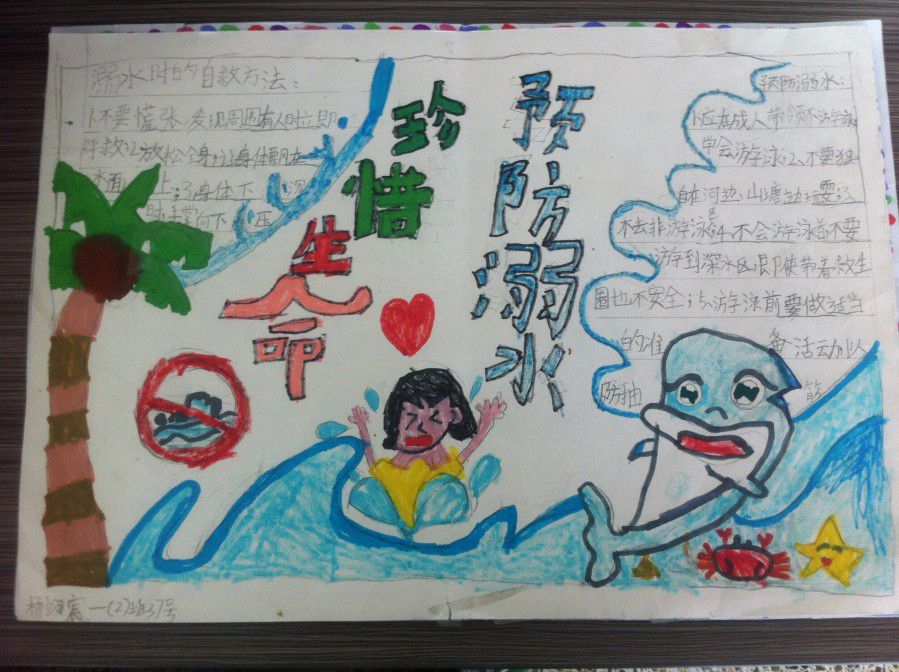 溺水时的自救方法:
1.不要慌张,发现周围有人时立即
呼救;2.放松全身,让身体飘浮在
水面上;3.身体下沉
时手掌向下压
珍惜
生命
预防溺水
预防溺水:
1.应在成人带领下游泳
学会游泳;2.不要独
自在河边、山塘边玩耍;3.
不去非游泳区;4.不会游泳者不要
游到深水区,即使带着救生
圈也不安全;5.游泳前要做适当
的准备活动以
防抽筋
一(2)班37号